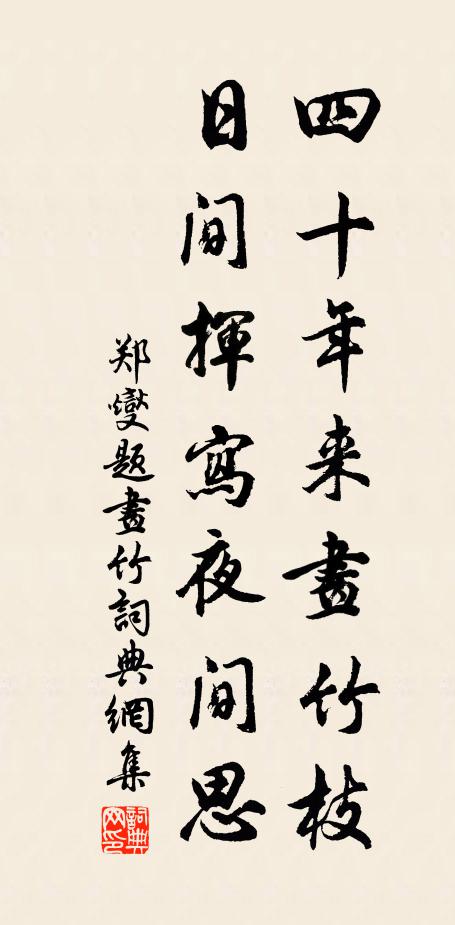 四十年来畫竹枝
日間揮寫夜間思
郑燮題畫竹詞典網集
詞典网印